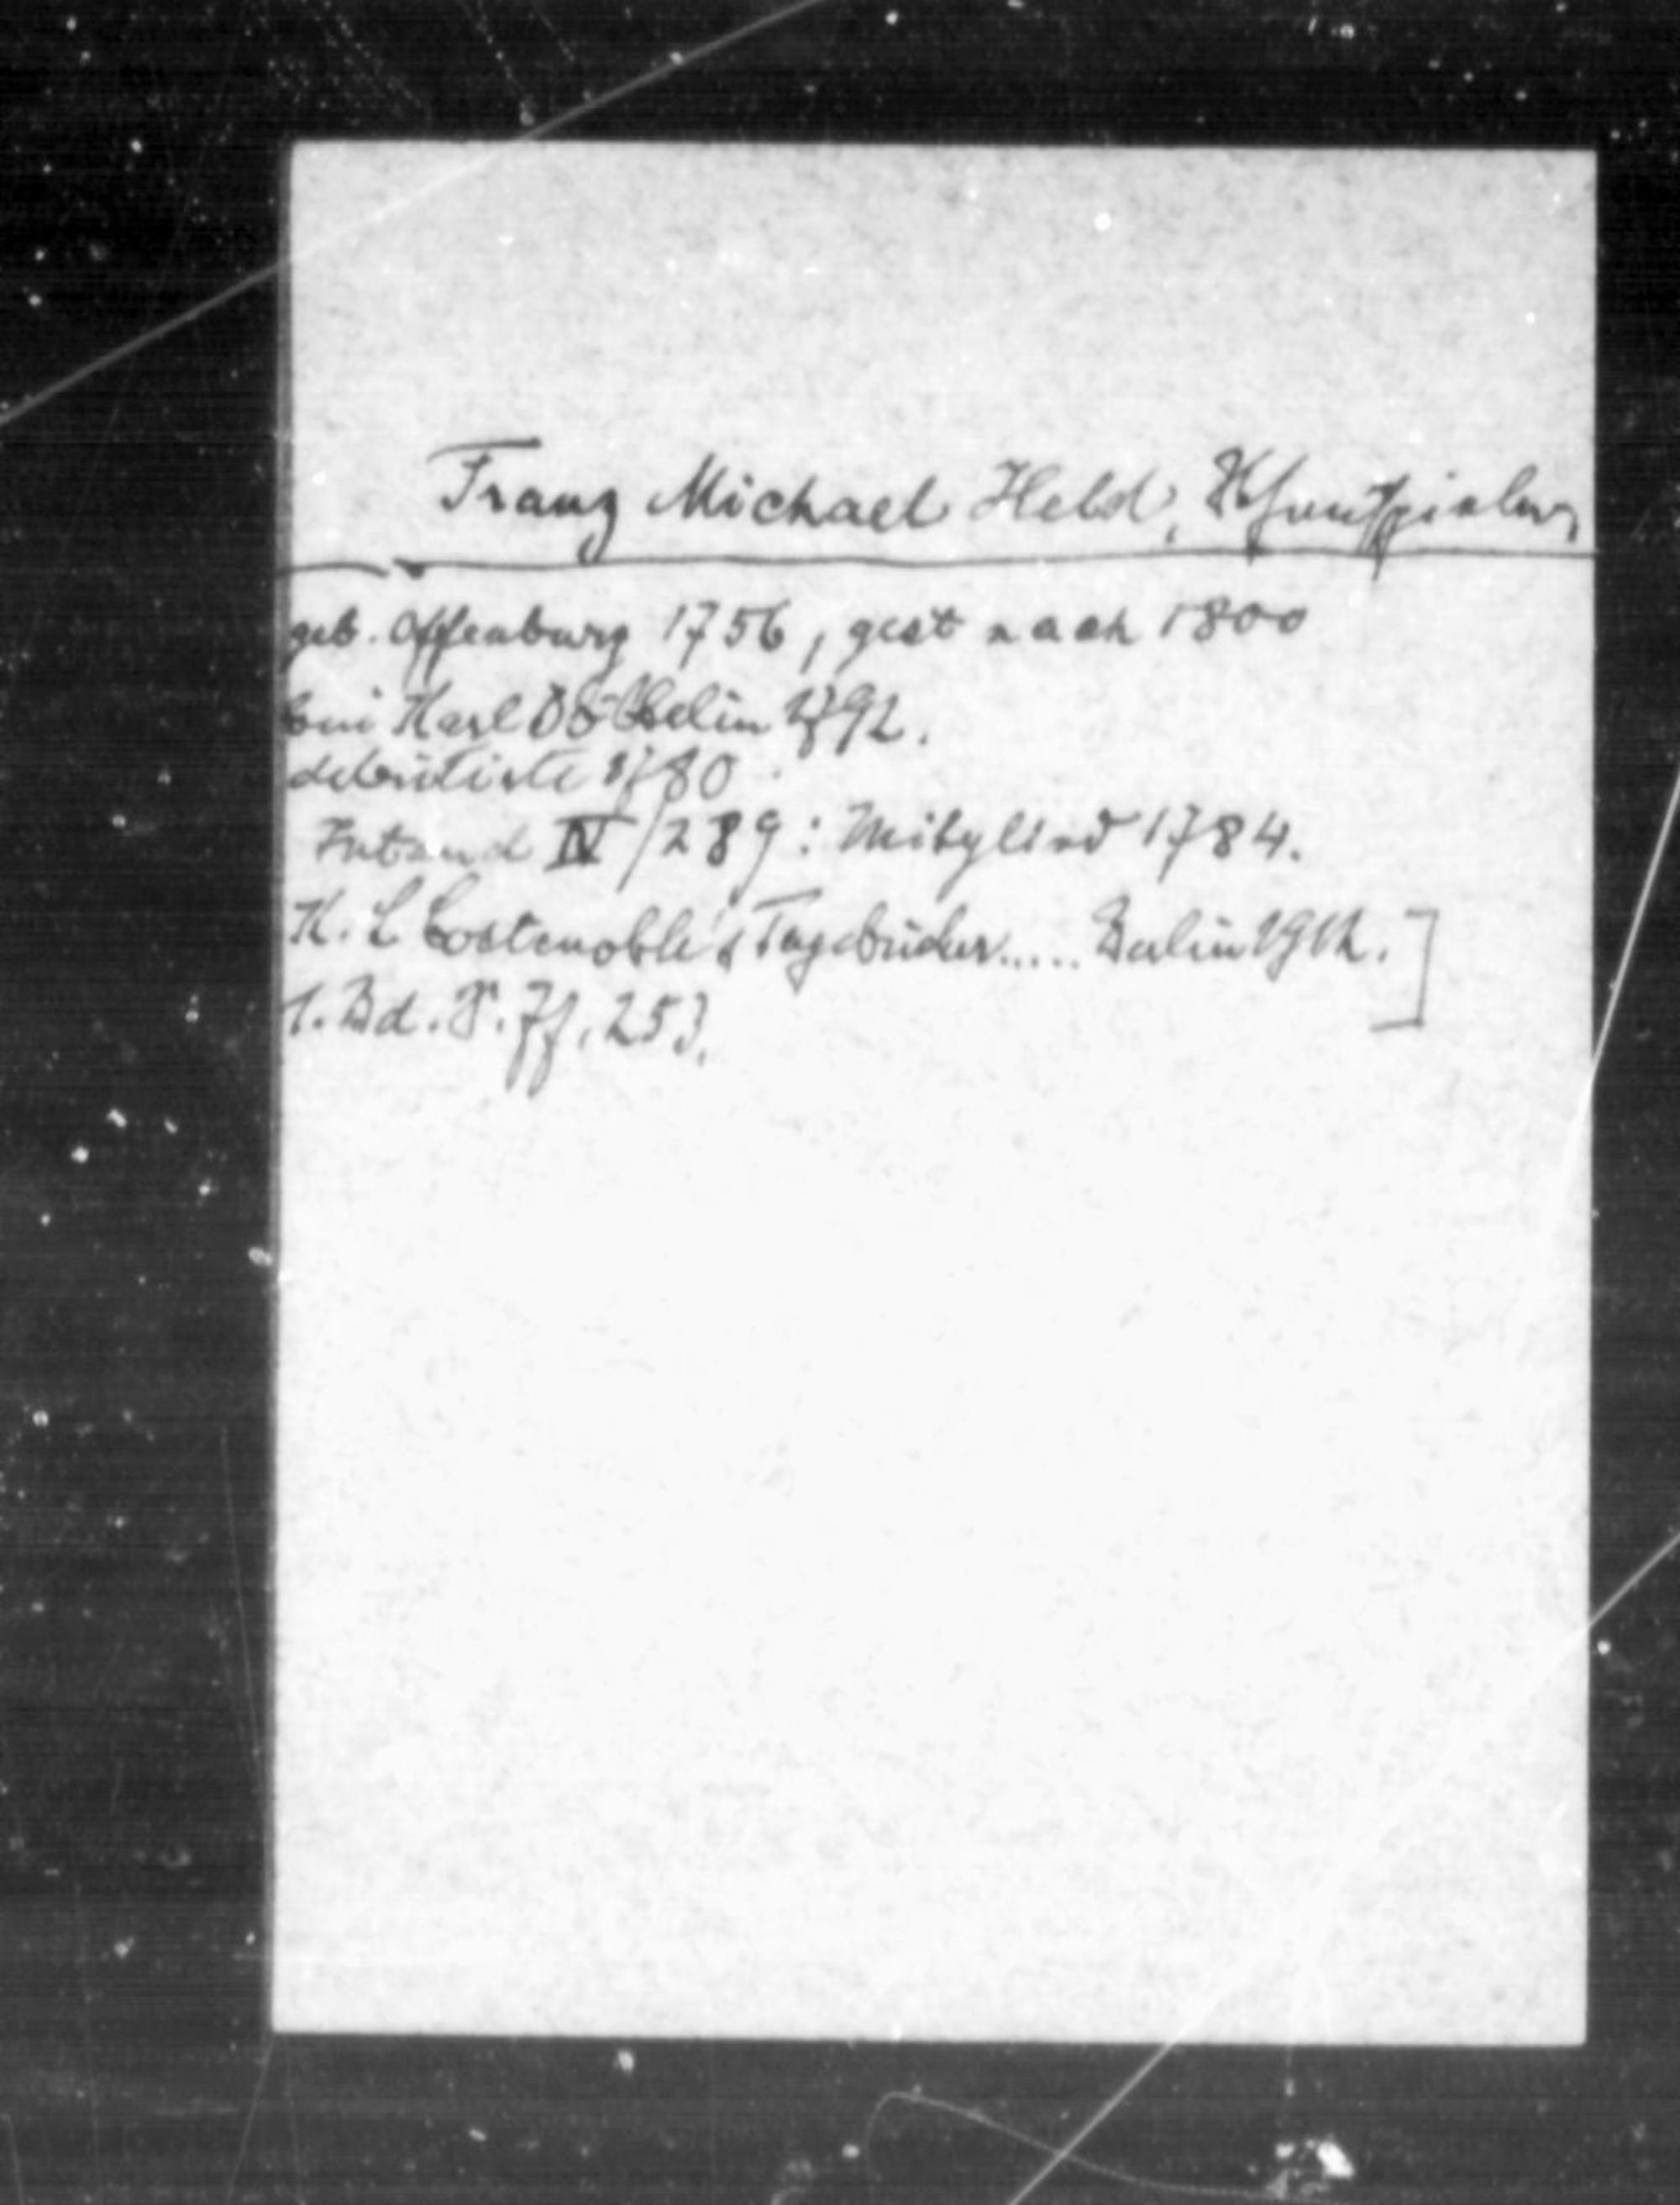 Franz Michael Held, Schauspieler,
geb. Offenburg 1756, gest nach 1800
bei Karl Döbbelin 1792.
debütirte 1780.
IV/289: Mitglied 1784.
K. L Costenoble's Tagebücher..... Berlin 1912.]
1. Bd. S. 7f, 253.